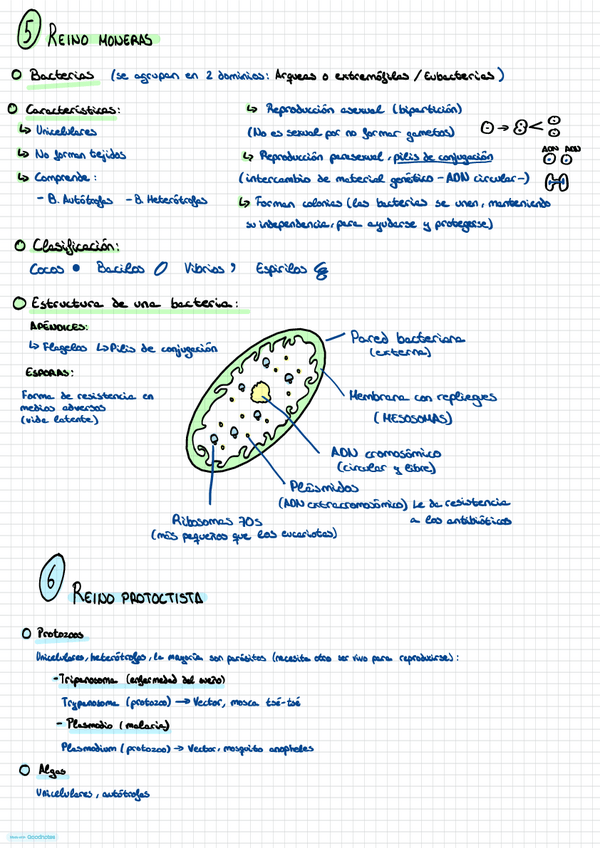 5 REINO MONERAS
Bacterias (se agrupan en 2 dominios: Arqueas o extremófilas / Eubacterias)
Características:
↳ Unicelulares
↳ No forman tejidos
↳ Comprende:
- B. Autótrofas - B. Heterótrofas
↳ Reproducción asexual (bipartición)
(No es sexual por no formar gametos)
↳ Reproducción parasexual, pilis de conjugación
(intercambio de material genético - ADN circular -)
↳ Forman colonias (las bacterias se unen, manteniendo
su independencia, para ayudarse y protegerse)
ADN ADN
Clasificación:
Cocos Bacilos Vibrios Espirilos
Estructura de una bacteria:
APÉNDICES:
↳ Flagelos ↳ Pilis de conjugación
ESPORAS:
Forma de resistencia en
medios adversos
(vida latente)
Pared bacteriana
(externa)
Membrana con repliegues
(MESOSOMAS)
ADN cromosómico
(circular y libre)
Plásmidos
(ADN extracromosómico) Le da resistencia
a los antibióticos
Ribosomas 70s
(más pequeños que los eucariotas)
6 REINO PROTOCTISTA
Protozoos
Unicelulares, heterótrofos, la mayoría son parásitos (necesita otro ser vivo para reproducirse):
- Tripanosoma (enfermedad del sueño)
Trypanosoma (protozoo) → Vector, mosca tsé-tsé
- Plasmodio (malaria)
Plasmodium (protozoo) → Vector, mosquito anopheles
Algas
Unicelulares, autótrofas
Made with Goodnotes